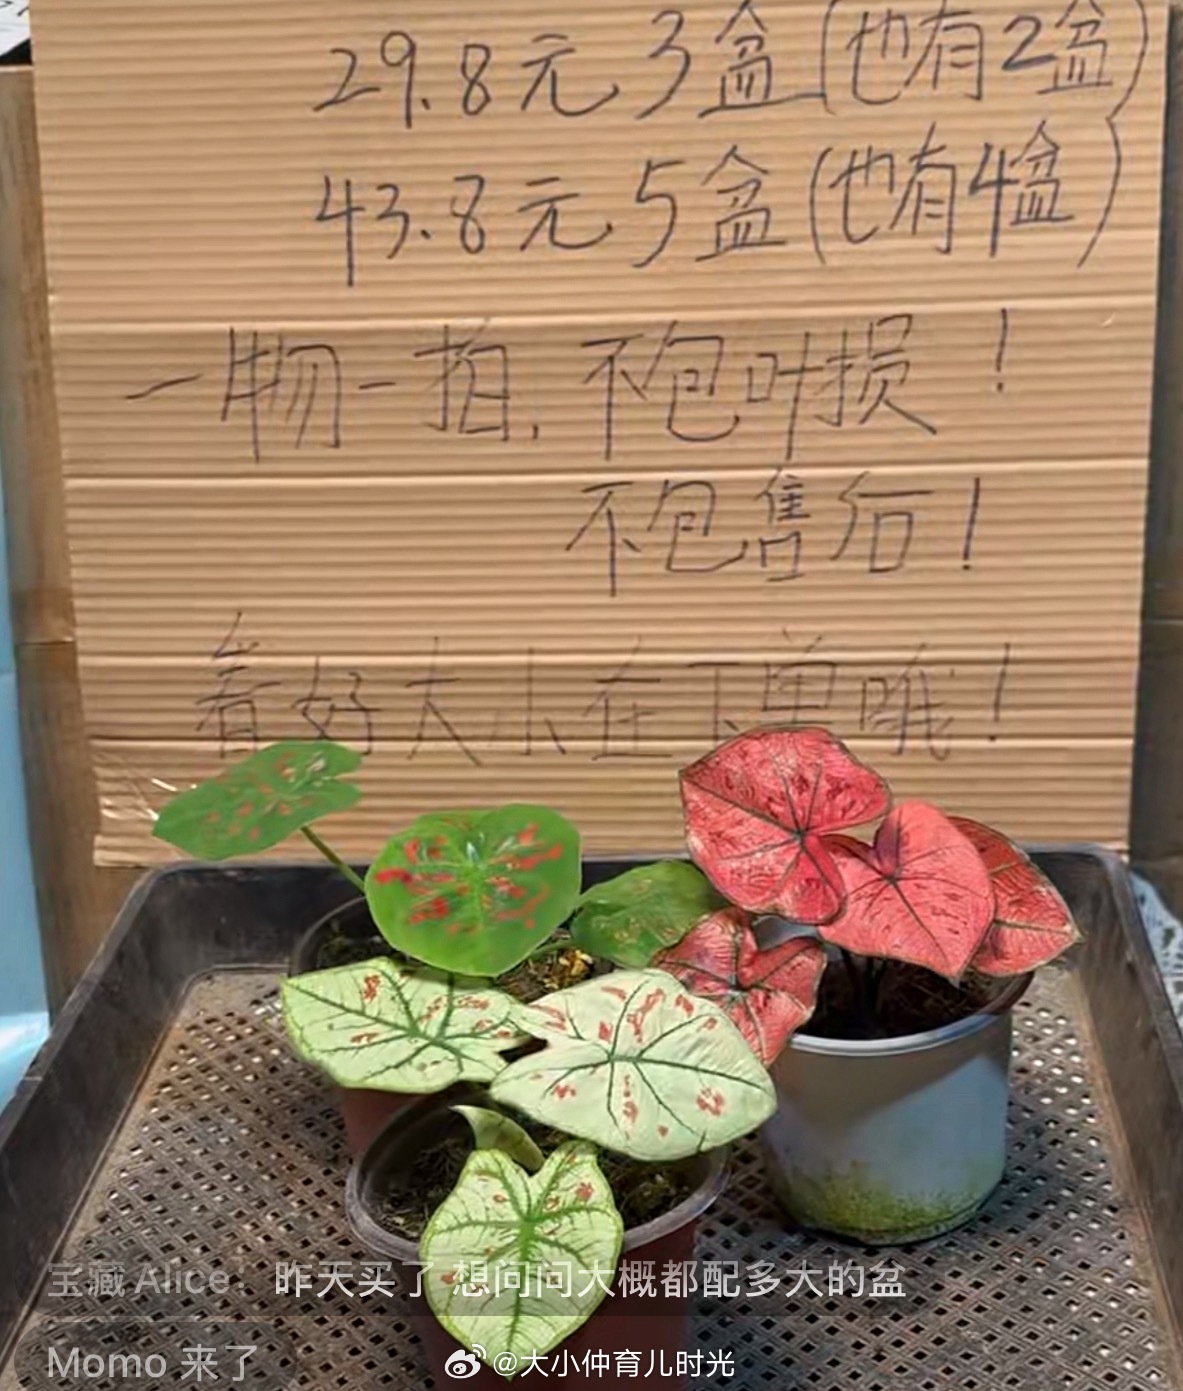 29.8元3盆(也有2盆)
43.8元5盆(也有4盆)
一物一拍,不包叶损!
不包售后!
看好大小在下单哦!
宝藏 Alice：昨天买了 想问问大概都配多大的盆
Momo 来了
@大小仲育儿时光